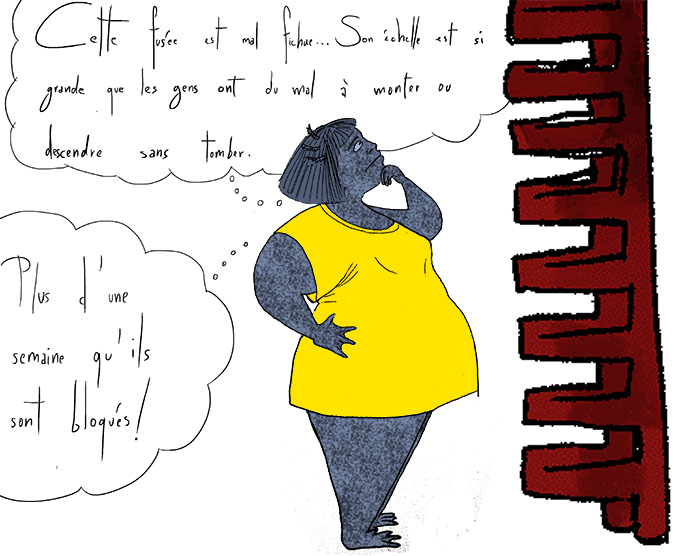 Cette fusée est mal fichue... Son échelle est si
grande que les gens ont du mal à monter ou
descendre sans tomber.
Plus d'une
semaine qu'ils
sont bloqués!